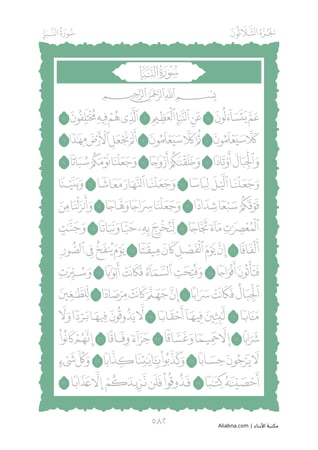 الجزء الثلاثون
سورة النبإ
سورة النبإ
بسم الله الرحمن الرحيم
عم يتساءلون ۝ عن النبإ العظيم ۝ الذي هم فيه مختلفون ۝
كلا سيعلمون ۝ ثم كلا سيعلمون ۝ ألم نجعل الأرض مهادا ۝
والجبال أوتادا ۝ وخلقناكم أزواجا ۝ وجعلنا نومكم سباتا ۝
وجعلنا الليل لباسا ۝ وجعلنا النهار معاشا ۝ وبنينا
فوقكم سبعا شدادا ۝ وجعلنا سراجا وهاجا ۝ وأنزلنا من
المعصرات ماء ثجاجا ۝ لنخرج به حبا ونباتا ۝ وجنات
ألفافا ۝ إن يوم الفصل كان ميقاتا ۝ يوم ينفخ في الصور
فتأتون أفواجا ۝ وفتحت السماء فكانت أبوابا ۝ وسيرت
الجبال فكانت سرابا ۝ إن جهنم كانت مرصادا ۝ للطاغين
مآبا ۝ لابثين فيها أحقابا ۝ لا يذوقون فيها بردا ولا
شرابا ۝ إلا حميما وغساقا ۝ جزاء وفاقا ۝ إنهم كانوا
لا يرجون حسابا ۝ وكذبوا بآياتنا كذابا ۝ وكل شيء
أحصيناه كتابا ۝ فذوقوا فلن نزيدكم إلا عذابا ۝
٥٨٢
مكتبة الأبناء | Aliabna.com